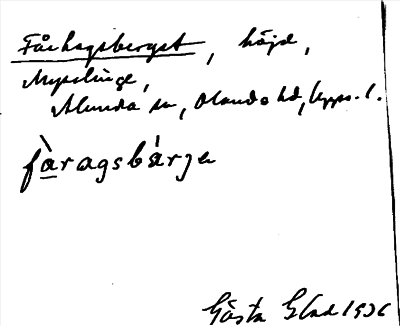 Fårhagsberget, höjd,
Mysslinge,
Alunda sn, Olands hd, Upps. l.
fàragsbárjə
Gösta Glad 1936